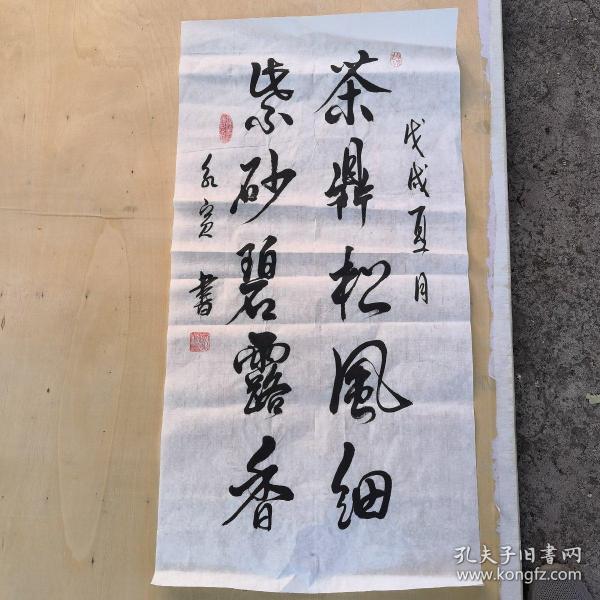 戊戌夏月
茶鼎松风细
紫砂碧露香
书
孔夫子旧書网
www.kongfz.com